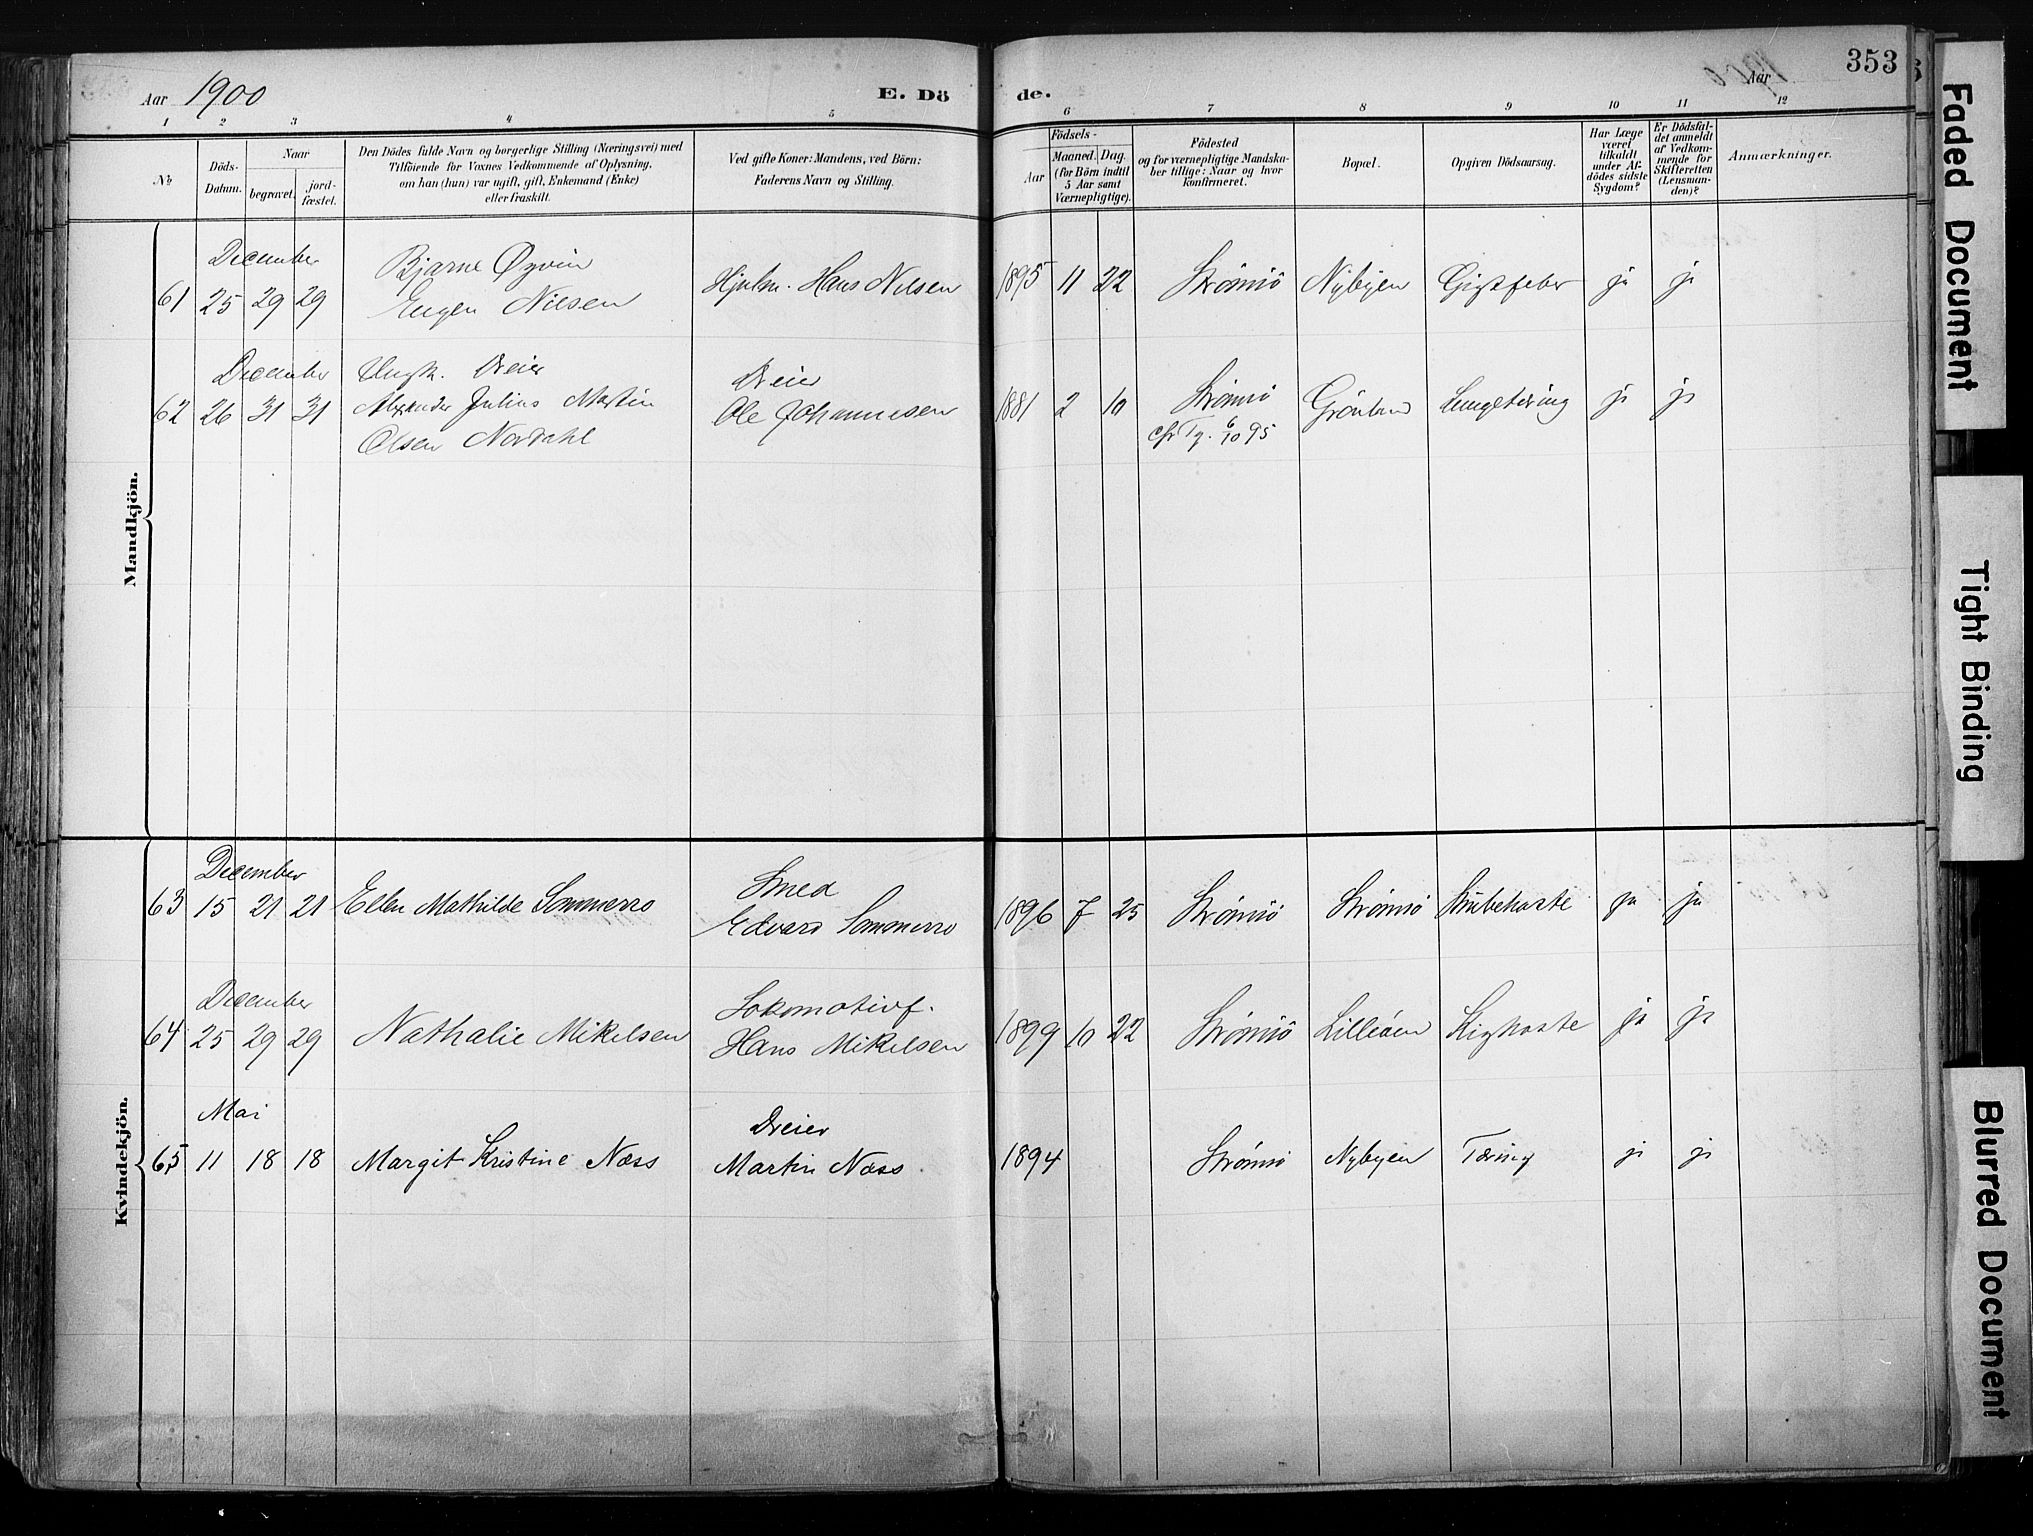 353
Aar 1900
E. Döde.
Aar
1 2 3 4 5 6 7 8 9 10 11 12
№
Döds-Datum.
Naar
begravet.
jordfæstet.
Den Dödes fulde Navn og borgerlige Stilling (Næringsvei) med
Tilföiende for Voxnes Vedkommende af Oplysning,
om han (hun) var ugift, gift, Enkemand (Enke)
eller fraskilt.
Ved gifte Koner: Mandens, ved Börn:
Faderens Navn og Stilling.
Födsels-
Aar
Maaned.
Dag.
(for Börn indtil
5 Aar samt
Værnepligtige).
Födested
og for værnepligtige Mandska-
ber tillige: Naar og hvor
konfirmeret.
Bopæl.
Opgiven Dödsaarsag.
Har Læge
været
tilkaldt
under Af-
dödes sidste
Sygdom?
Er Dödsfal-
det anmeldt
af Vedkom-
mende for
Skifteretten
(Lensman-
den)?
Anmærkninger.
Mandkjön.
December
61 25 29 29
Bjarne Øyvin
Eugen Nilsen
Hans Nilsen
1895 11 22 Strømsö Nybyen Gigtfeber ja ja
December
62 26 31 31
Ungk. Dreier
Alexander Julius Martin
Olsen Nordahl
Dreier
Ole Johannesen
1881 2 10 Strømsö Grönland Lungetæring ja ja
6/10 95
Kvindekjön.
December
63 15 21 21 Ellen Mathilde Sommerro
Smed
Edvard Sommerro
1896 7 25 Strømsö Strømsö Strubehoste ja ja
December
64 25 29 29 Nathalie Mikelsen
Lokomotivf.
Hans Mikelsen
1899 10 22 Strømsö Lilleöen Kighoste ja ja
Mai
65 11 18 18 Margit Kristine Næss
Dreier
Martin Næss.
1894 Strømsö Nybyen Tæring ja ja
Faded Document
Tight Binding
Blurred Document